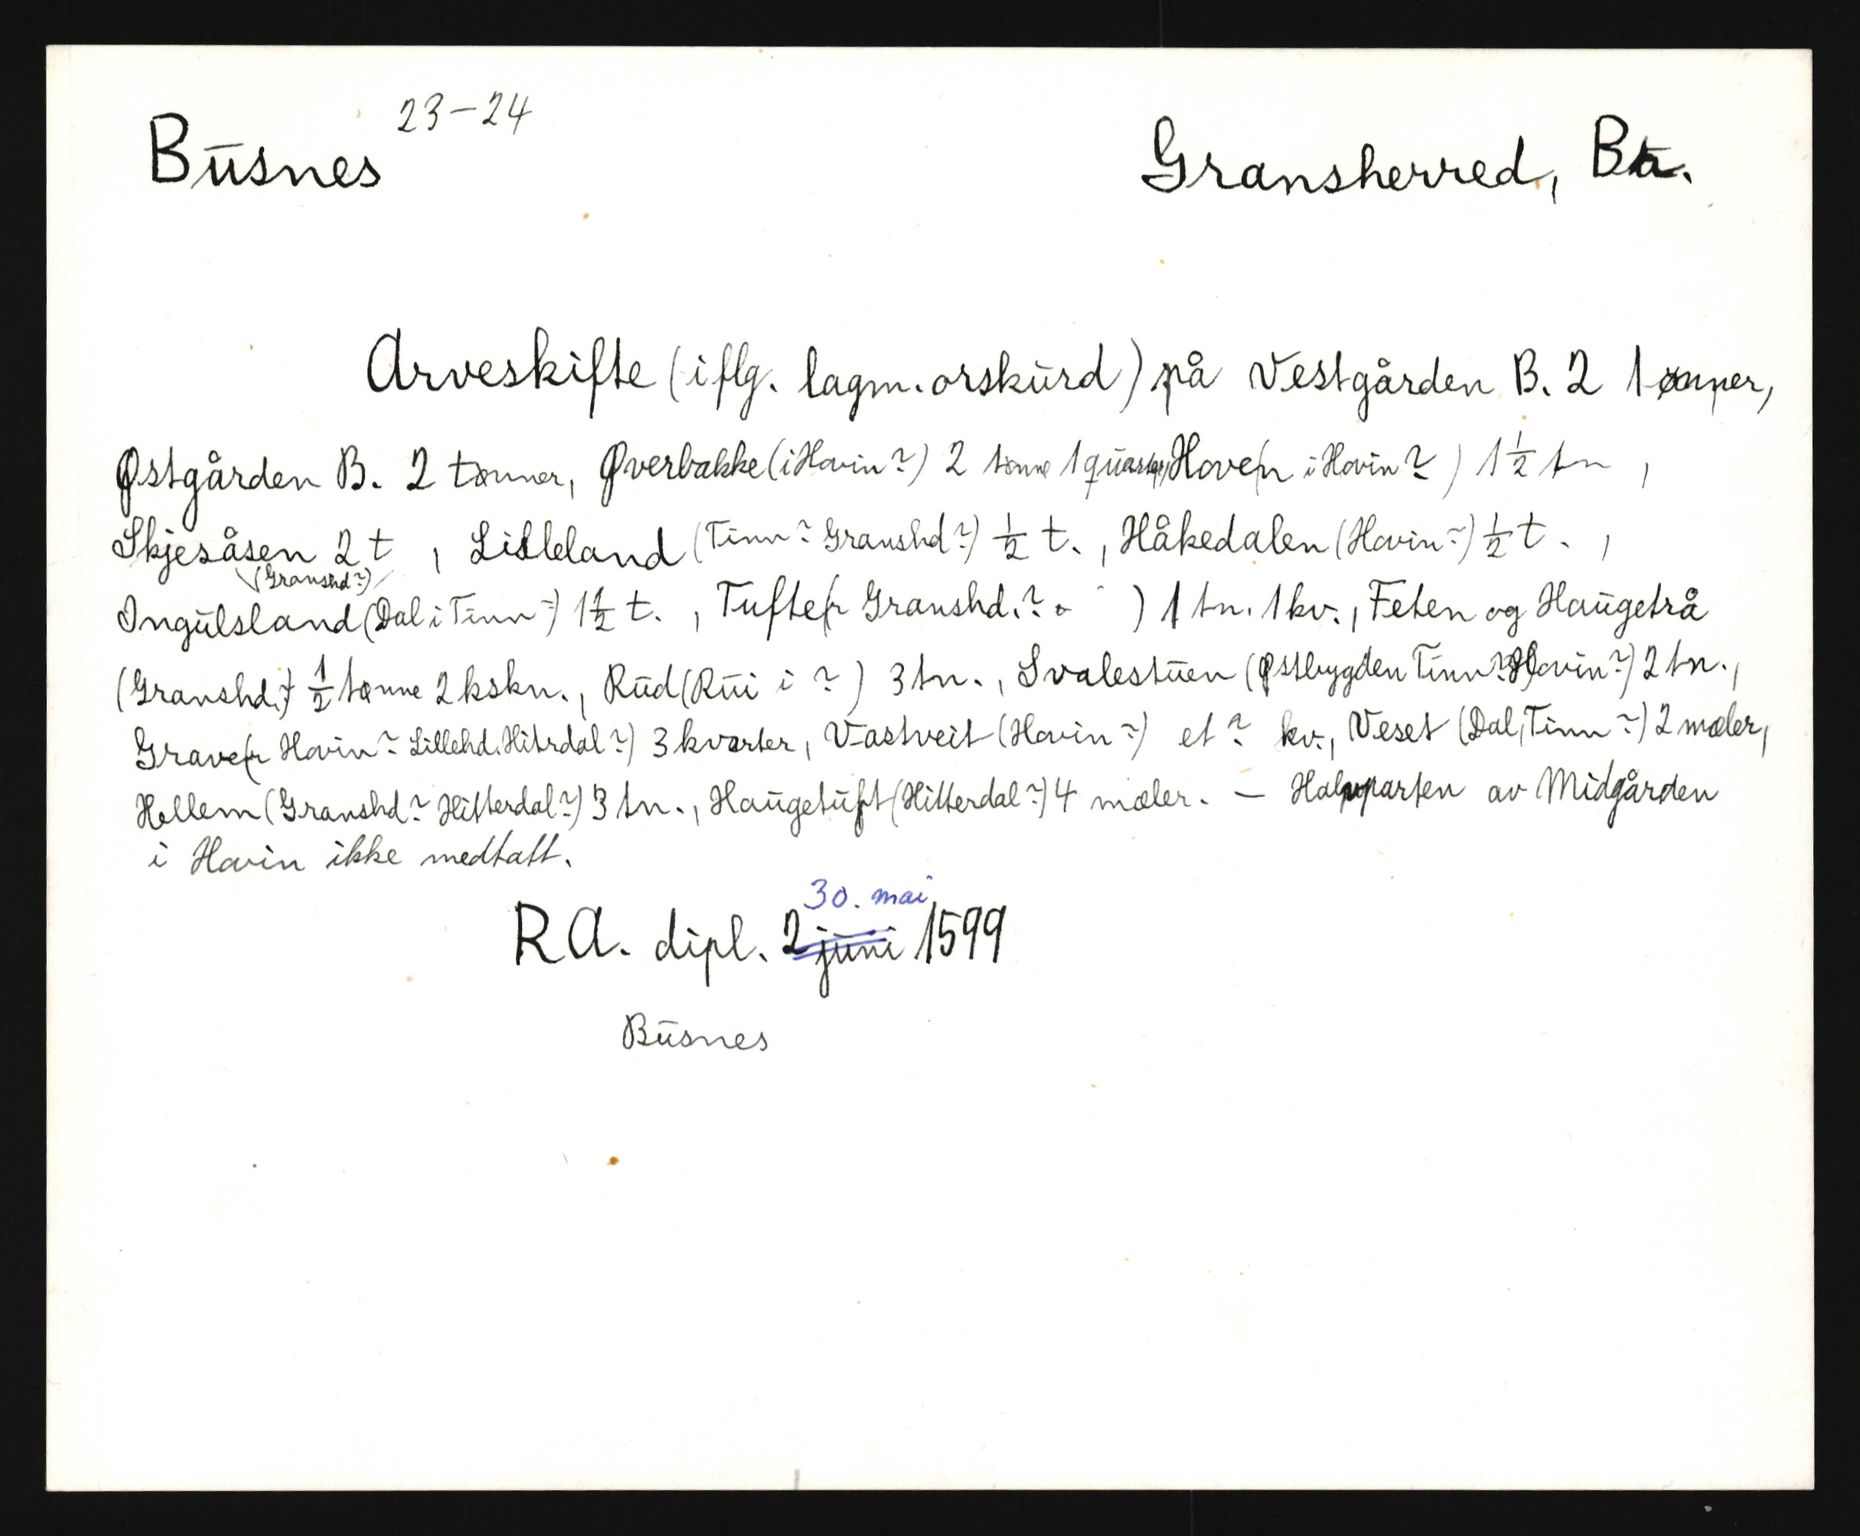 Busnes 23-24 Gransherred, Ba.
Arveskifte (iflg. lagm. orskurd) på Vestgården B. 2 tønner,
Østgården B. 2 tønner, Øverbakke (i Hovin?) 2 tønne 1 quarter, Hove(n i Hovin?) 1 1/2 tn,
Skjesåsen 2 t, Lisleland (Tinn? Granshd?) 1/2 t., Håkedalen (Hovin?) 1/2 t.,
(Granshd?)
Ingulsland (Dal i Tinn?) 1 1/2 t., Tufte(r Granshd.?) 1 tn. 1 kv., Feten og Haugetrå
(Granshd.?) 1/2 tønne 2 kskn., Rud (Rui i ?) 3 tn., Svalestuen (Østbygden Tinn? Hovin?) 2 tn.,
Grave(r Hovin? Lillehd. Hitrdal?) 3 kvarter, Vastveit (Hovin?) et? kv., Veset (Dal, Tinn?) 2 mæler,
Hellem (Granshd? Hitterdal?) 3 tn., Haugetuft (Hitterdal?) 4 mæler. — Halvparten av Midgården
i Hovin ikke medtatt.
30. mai
RA. dipl. 2 juni 1599
Busnes